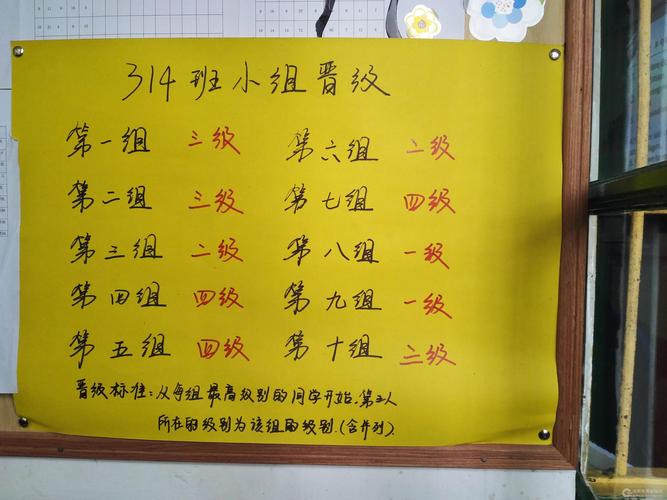 314班小组晋级
第一组 三级 第六组 二级
第二组 三级 第七组 四级
第三组 二级 第八组 一级
第四组 四级 第九组 一级
第五组 四级 第十组 三级
晋级标准:从每组最高级别的同学开始.第三人
所在的级别为该组的级别.(含并列)